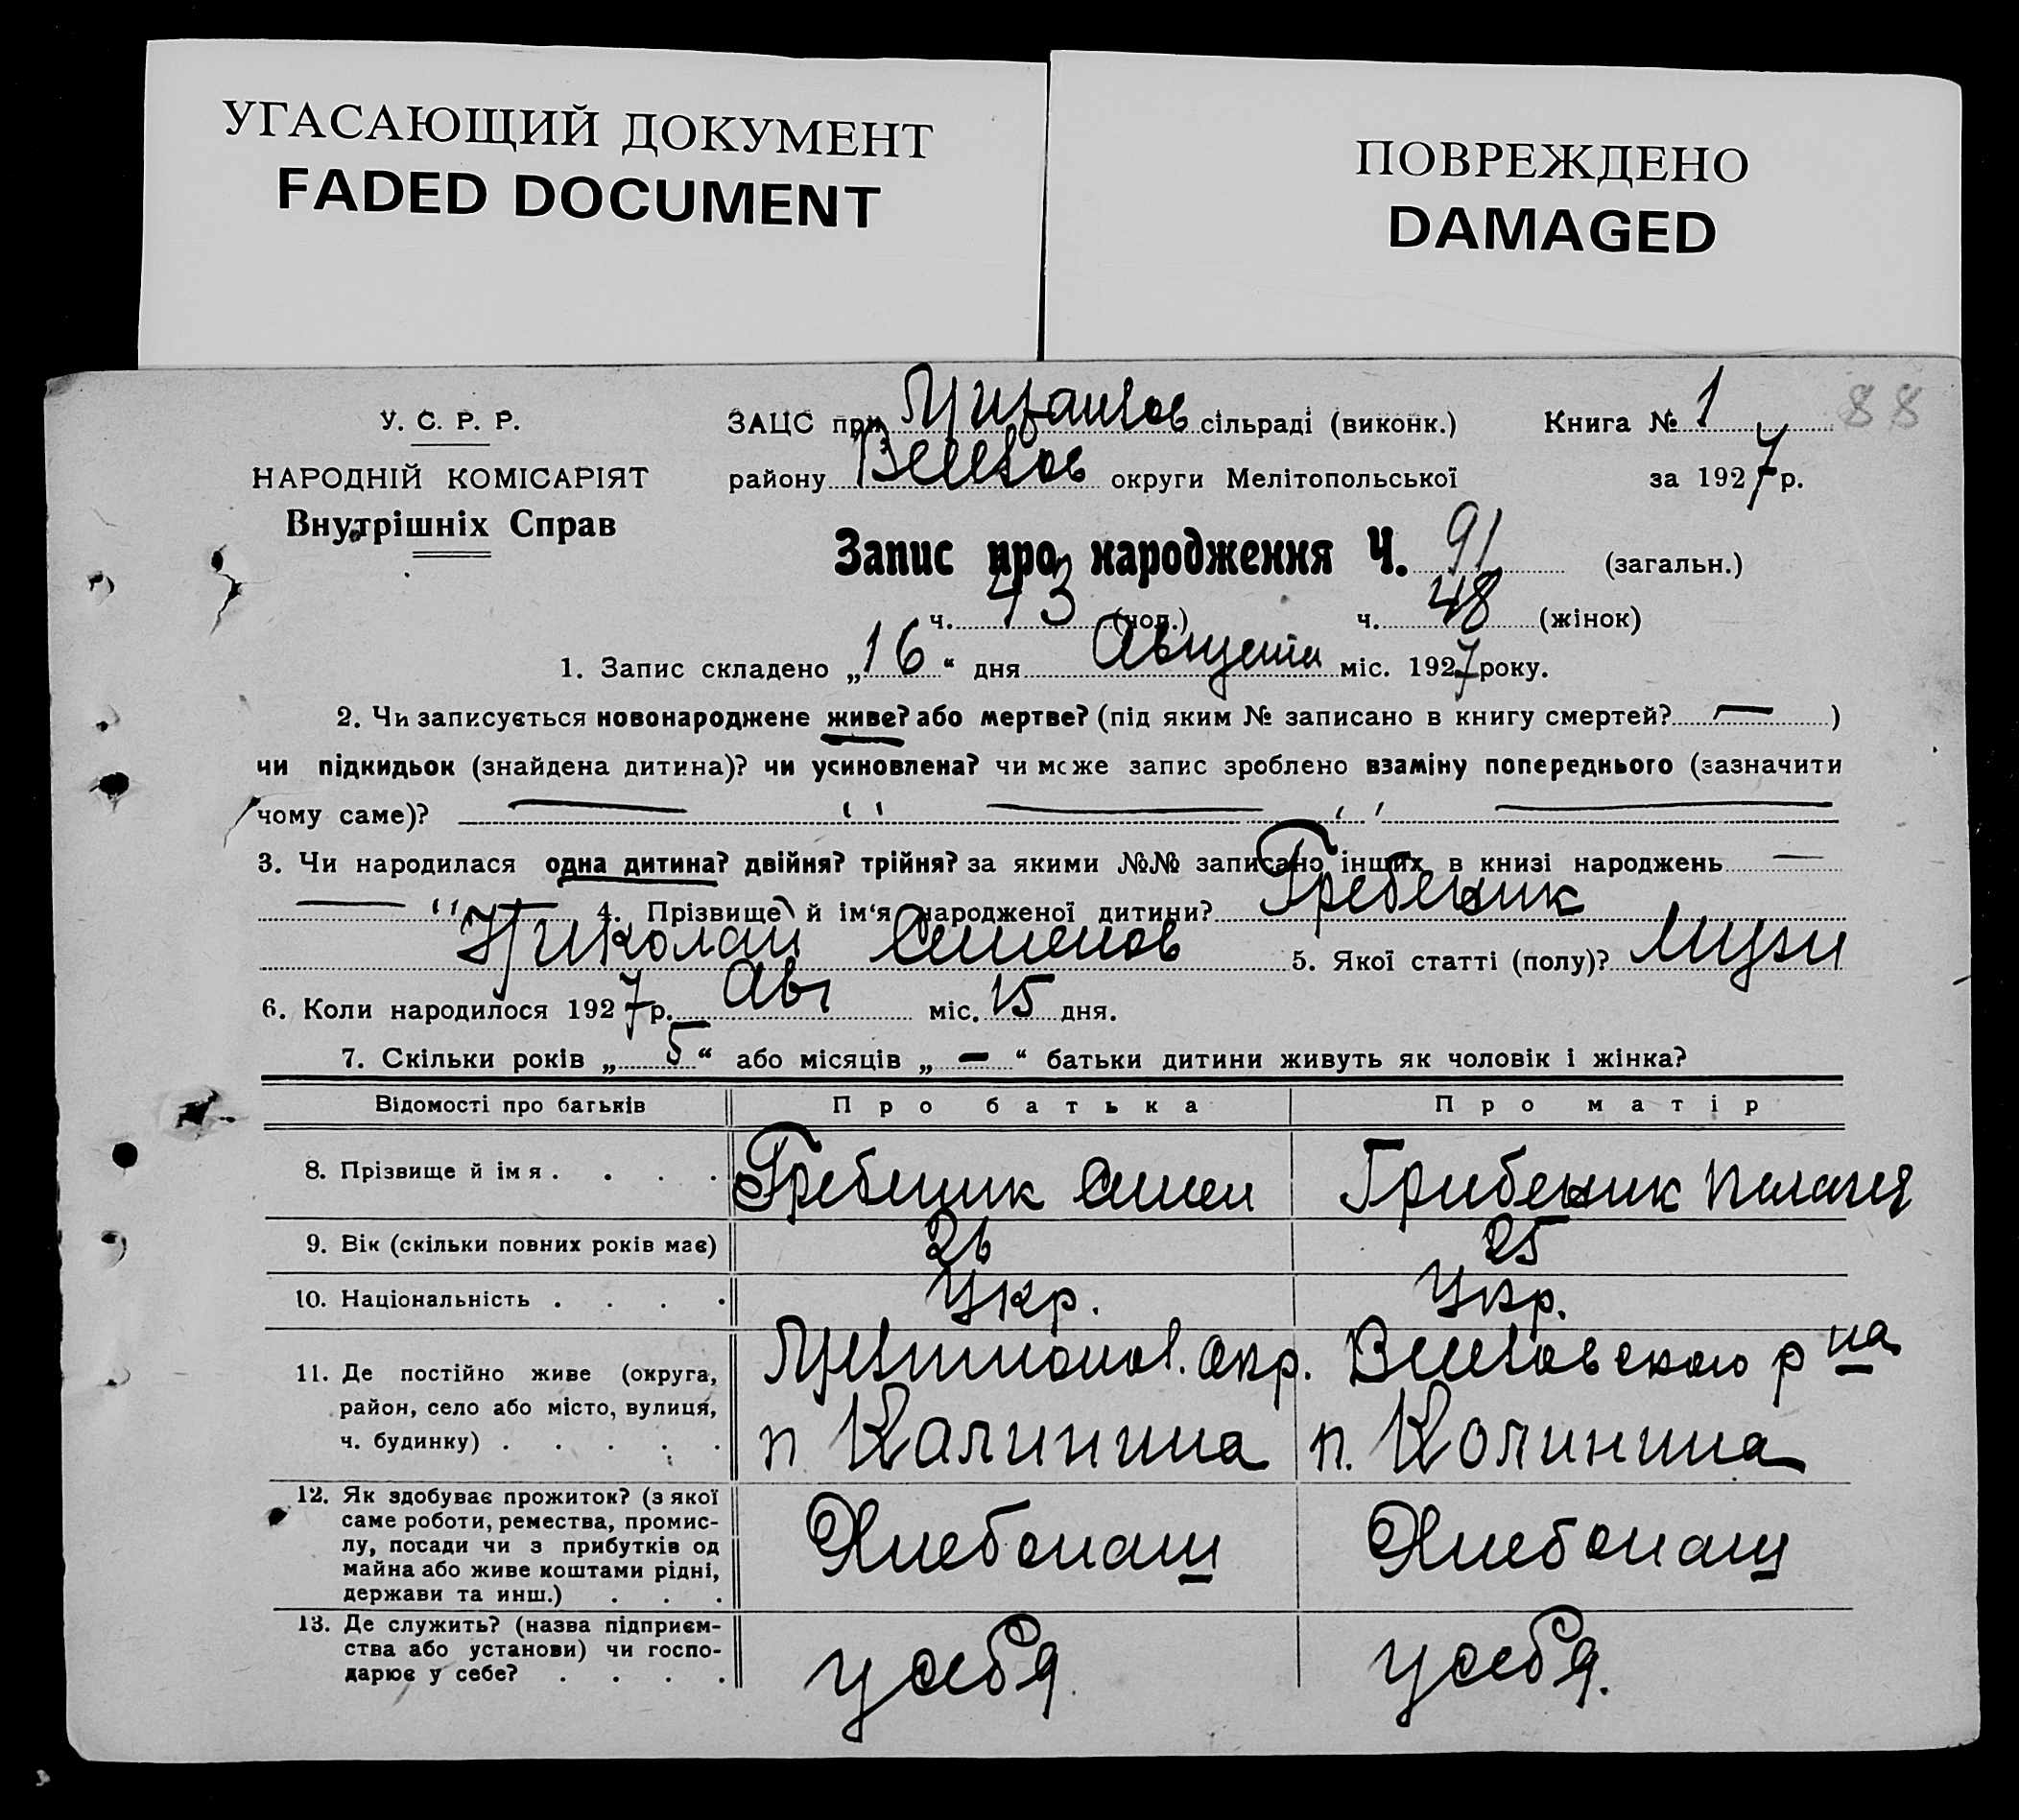 УГАСАЮЩИЙ ДОКУМЕНТ
FADED DOCUMENT
ПОВРЕЖДЕНО
DAMAGED
У. С. Р. Р.
НАРОДНІЙ КОМІСАРІЯТ
Внутрішніх Справ
ЗАЦС при сільраді (виконк.) Книга № 1 88
району Веселов округи Мелітопольської за 1927 р.
Запис про народження Ч. 91 (загальн.)
ч. 43 (чол.) ч. 48 (жінок)
1. Запис складено „16“ дня Августа міс. 1927 року.
2. Чи записується новонароджене живе? або мертве? (під яким № записано в книгу смертей? — )
чи підкидьок (знайдена дитина)? чи усиновлена? чи може запис зроблено взаміну попереднього (зазначити
чому саме)? — " — " —
3. Чи народилася одна дитина? двійня? трійня? за якими №№ записано інших в книзі народжень —
— " 4. Прізвище й ім‘я народженої дитини? Гребеник
Николай Семенов 5. Якої статті (полу)? Мужч
6. Коли народилося 1927 р. Авг міс. 15 дня.
7. Скільки років „ 5 “ або місяців „ — “ батьки дитини живуть як чоловік і жінка?
Відомості про батьків Про батька Про матір
8. Прізвище й імя . . . . Гребеник Семен Грибеник Пелагея
9. Вік (скільки повних років має) 26 25
10. Національність . . . . Укр. Укр.
11. Де постійно живе (округа, район, село або місто, вулиця, ч. будинку) . . . . . Мелитопол. окр. Веселовского р на
п Калинина п. Колинина
12. Як здобуває прожиток? (з якої
саме роботи, ремества, промис-
лу, посади чи з прибутків од
майна або живе коштами рідні,
держави та инш.) . . . Хлебопаш Хлебопаш
13. Де служить? (назва підприєм-
ства або установи) чи госпо-
дарює у себе? . . . . у себя у себя.